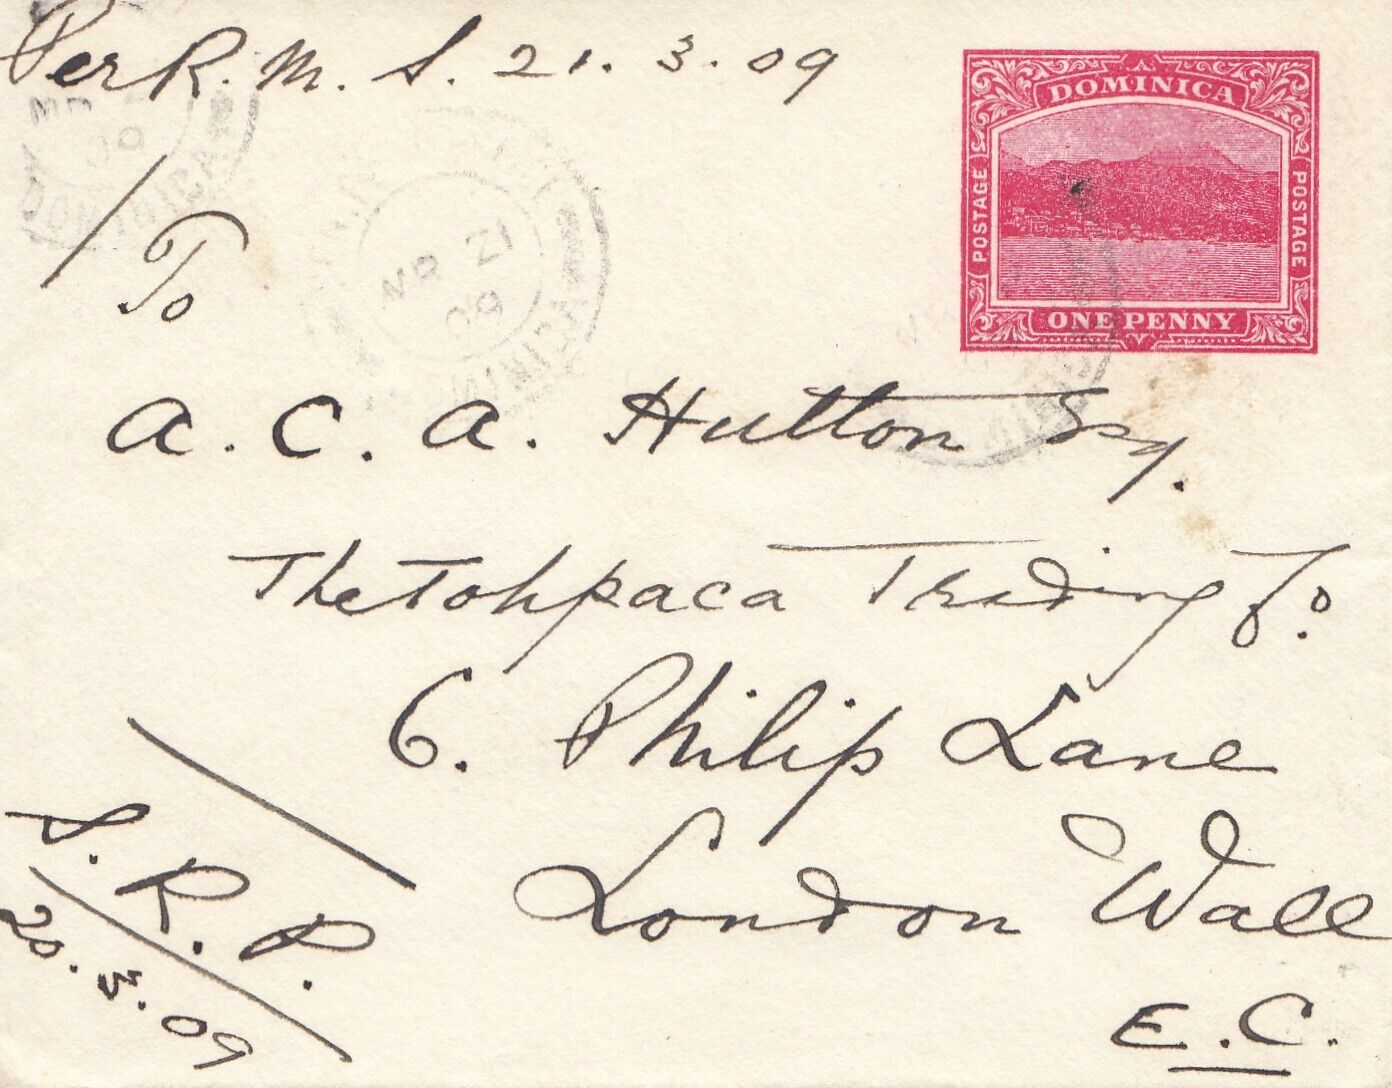 Per R. M. S. 21. 3. 09
DOMINICA
POSTAGE
POSTAGE
ONE PENNY
MR
09
DOMINICA
MR 21
09
MINICA
To
A. C. A. Hutton Esq.
The Tohpaca Trading Co.
6. Philip Lane
London Wall
E. C.
S. R. P.
20. 3. 09